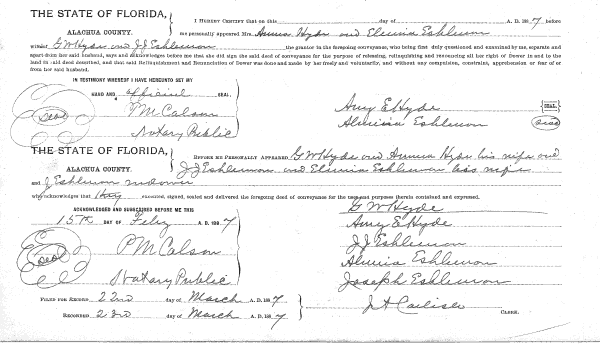 THE STATE OF FLORIDA,
ALACHUA COUNTY.
I HEREBY CERTIFY that on this day of A. D. 1887 before
me personally appeared Mrs. Annia Hyde and Elmina Eshlemon
wives G W Hyde and J J Eshlemon the grantor in the foregoing conveyance, who being first duly questioned and examined by me, separate and
apart from her said husband, says and acknowledges before me that she did sign the said deed of conveyance for the purpose of releasing, relinquishing and renouncing all her right of Dower in and to the
land in said deed described, and that said Relinquishment and Renunciation of Dower was done and made by her freely and voluntarily, and without any compulsion, constraint, apprehension or fear of or
from her said husband.
IN TESTIMONY WHEREOF I HAVE HEREUNTO SET MY
HAND AND official SEAL,
Seal
P M Calson
Notary Public
Amy E Hyde SEAL
Almina Eshlemon Seal
THE STATE OF FLORIDA,
ALACHUA COUNTY.
BEFORE ME PERSONALLY APPEARED G W Hyde and Annia Hyde his wife and
J J Eshlemon and Elmina Eshlemon his wife
and J Eshlemon widower
who acknowledges that they executed, signed, sealed and delivered the foregoing deed of conveyance for the uses and purposes therein contained and expressed.
ACKNOWLEDGED AND SUBSCRIBED BEFORE ME THIS
15th DAY OF Feby A. D. 1887
Seal
P M Calson
Notary Public
G W Hyde
Amy E Hyde
J J Eshlemon
Almina Eshlemon
Joseph Eshlemon
FILED FOR RECORD 22nd day of March A. D. 1887
RECORDED 23rd day of March A. D. 1887
J A Carlisle CLERK.